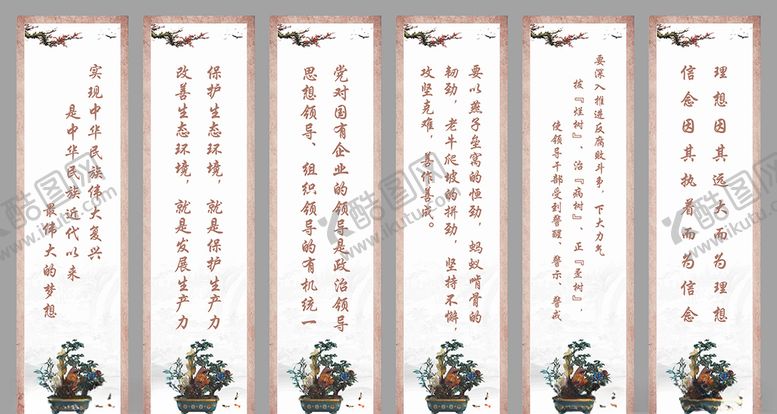 实现中华民族伟大复兴
是中华民族近代以来
最伟大的梦想
保护生态环境，就是保护生产力
改善生态环境，就是发展生产力
党对国有企业的领导是政治领导
思想领导、组织领导的有机统一
要以燕子垒窝的恒劲，蚂蚁啃骨的
韧劲，老牛爬坡的拼劲，坚持不懈，
攻坚克难，善作善成。
要深入推进反腐败斗争，下大力气
拔『烂树』、治『病树』、正『歪树』，
使领导干部受到警醒、警示、警戒
理想因其远大而为理想
信念因其执着而为信念
酷图网
www.ikutu.com
酷图网
www.ikutu.com
酷图网
www.ikutu.com